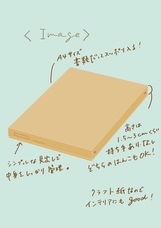 < Image >
A4サイズ
書類だってスッポリ入る!
高さは
1.5~3cmくらい
持ち手ありなし
どちらのはんこもOK!
シンプルな見出しで
中身をしっかり管理。
クラフト紙なので
インテリアにも good!